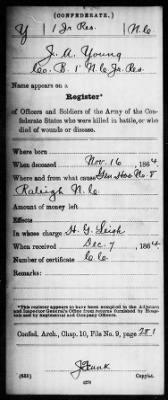 (CONFEDERATE.)
Y 1 Jr Res. N.C.
J. A. Young
Co. B. 1" N.C. Jr. Res.
Name appears on a
Register*
of Officers and Soldiers of the Army of the Confederate States who were killed in battle, or who
died of wounds or disease.
Where born
When deceased Nov. 16, 1864.
Where and from what cause Gen Hos No. 8
Raleigh N. C.
Amount of money left
Effects
In whose charge H. G. Leigh
When received Dec. 7, 1864.
Number of certificate
Remarks:
*This register appears to have been compiled in the Adjutant
and Inspector General's Office from returns furnished by Hospitals and by Regimental and Company Officers.
Confed. Arch., Chap. 10, File No. 9, page 281
J Funk
(635) Copyist.